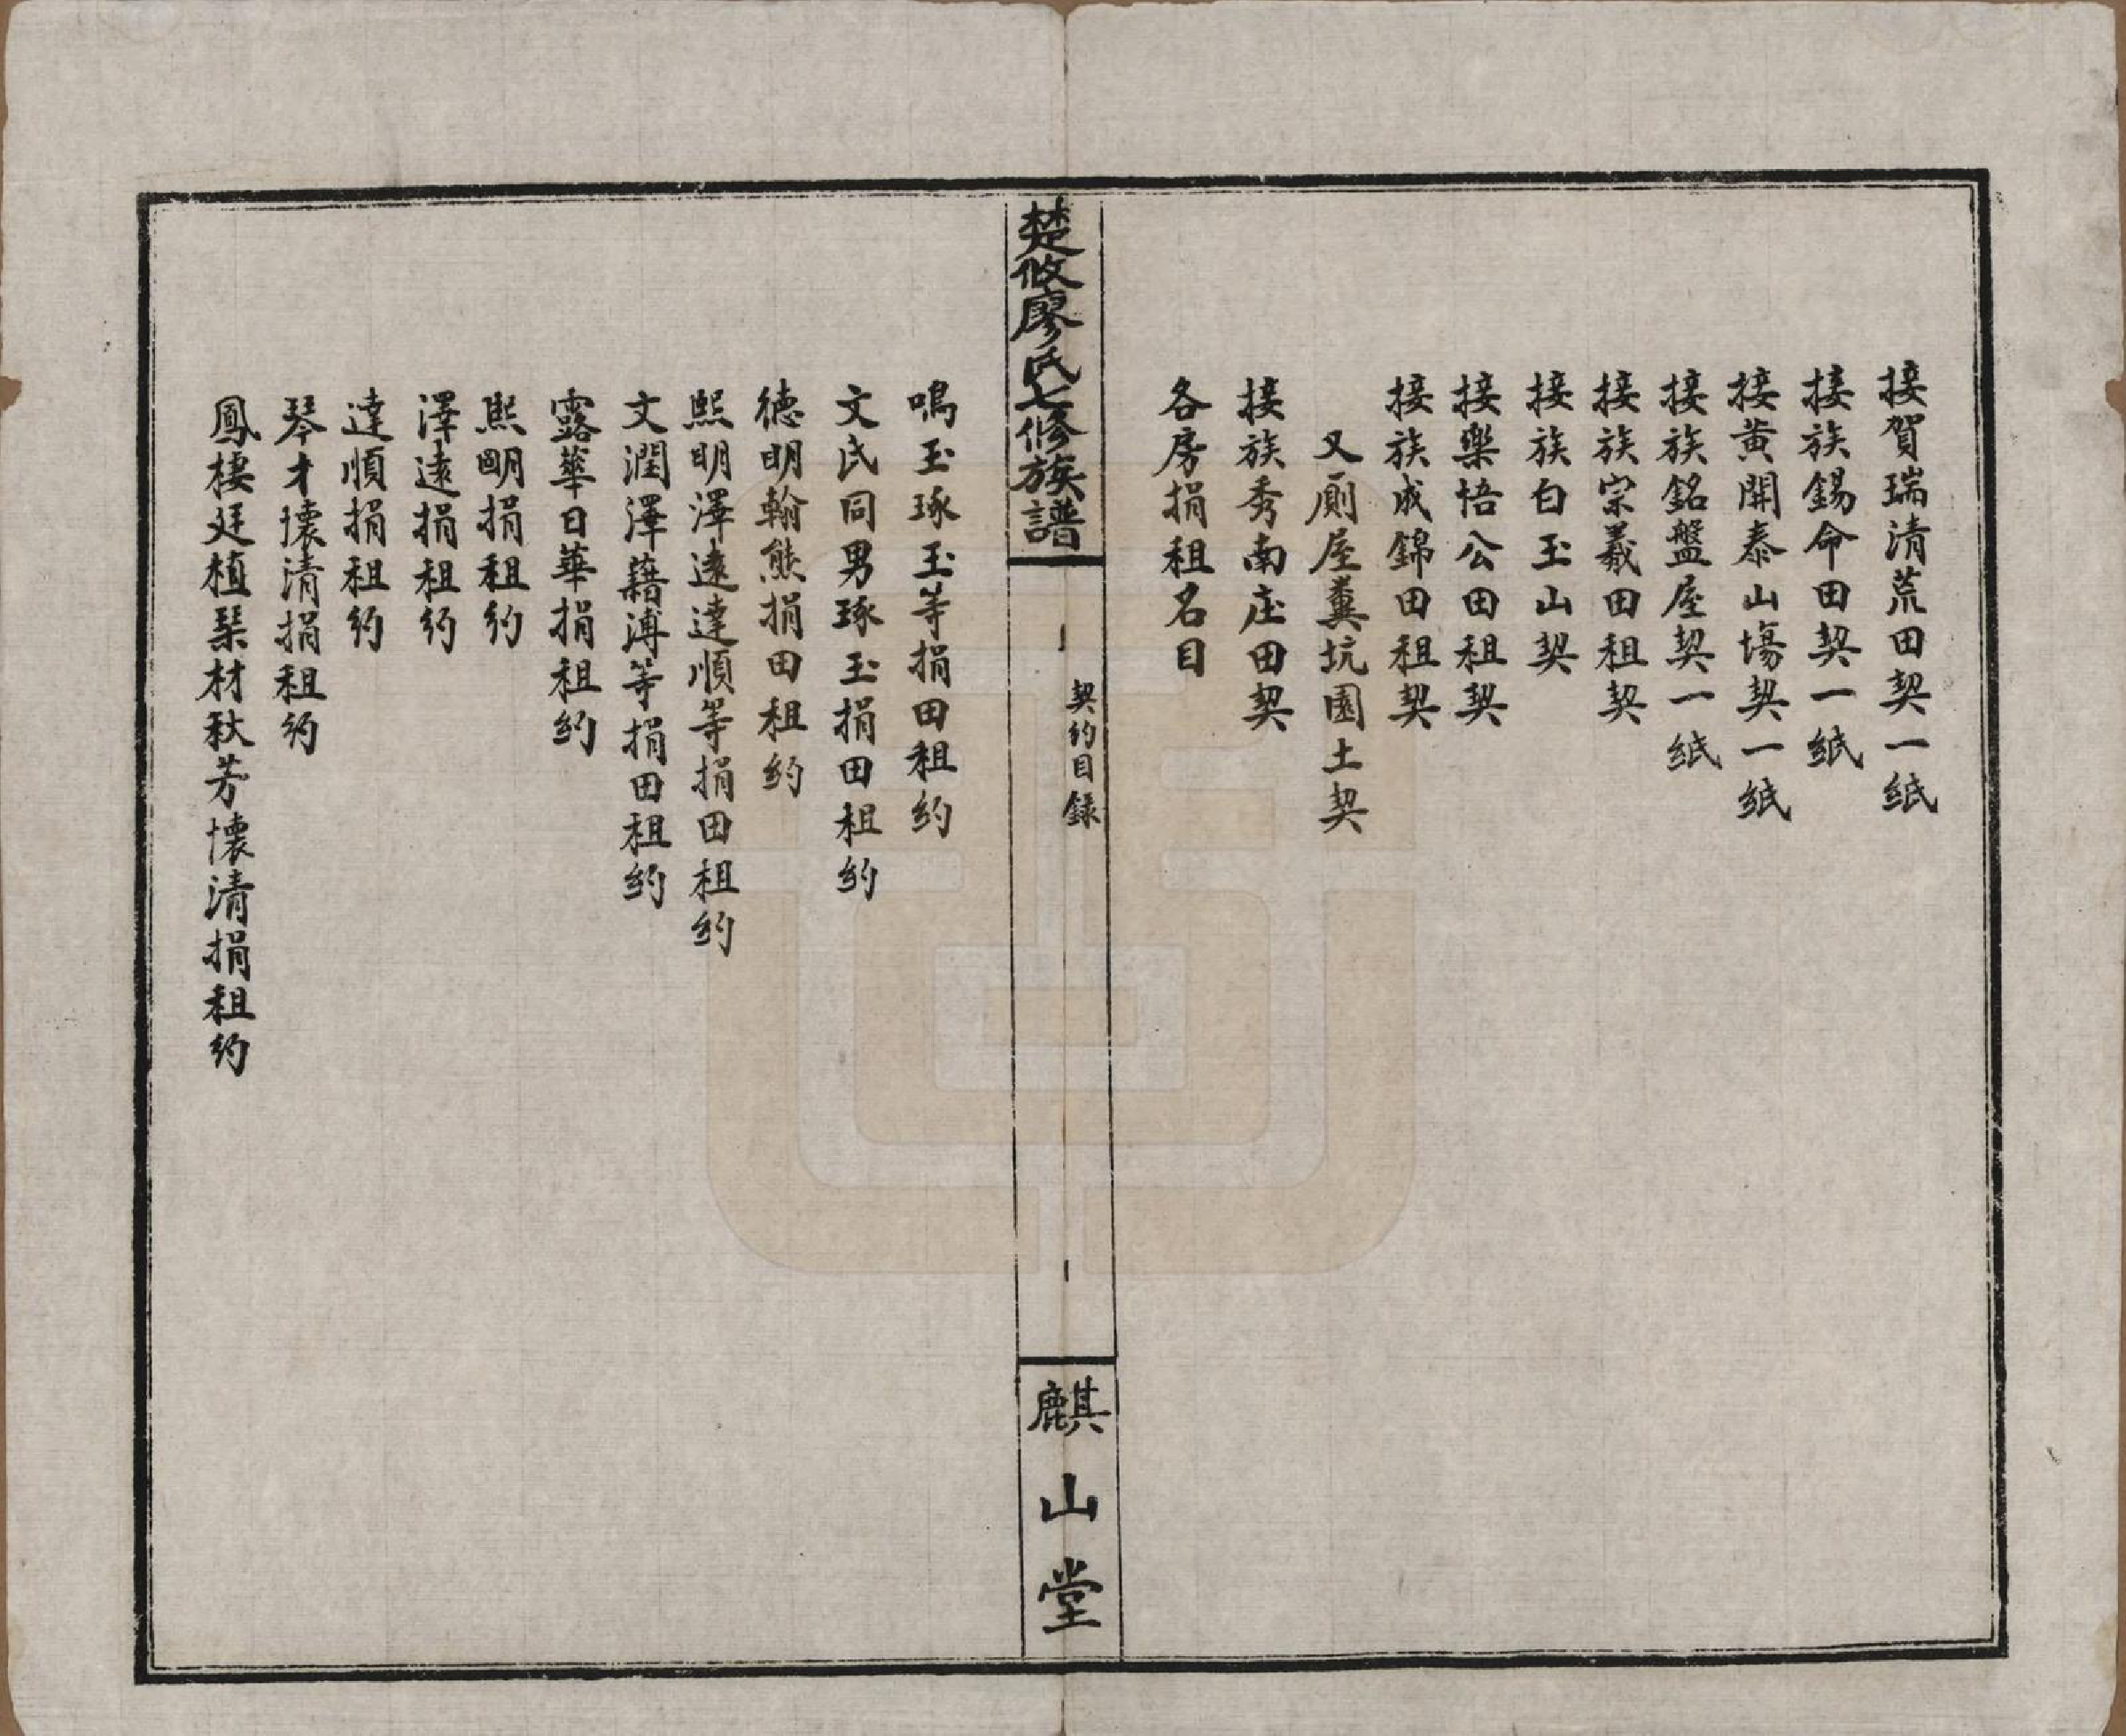 接賀瑞清荒田契一紙
接族錫命田契一紙
接黄開泰山塲契一紙
接族銘盤屋契一紙
接族宗羲田租契
接族白玉山契
接樂悟公田租契
接族成錦田租契
又廁屋糞坑園土契
接族秀南庄田契
各房捐租名目
楚攸廖氏七修族譜
契約目録
麒山堂
鳴玉琢玉等捐田租約
文氏同男琢玉捐田租約
德明翰熊捐田租約
熙明澤遠達順等捐田租約
文潤澤藉溥等捐田租約
露華日華捐租約
熙明捐租約
澤遠捐租約
達順捐租約
琴才懷清捐租約
鳳棲廷植琹材秋芳懷清捐租約